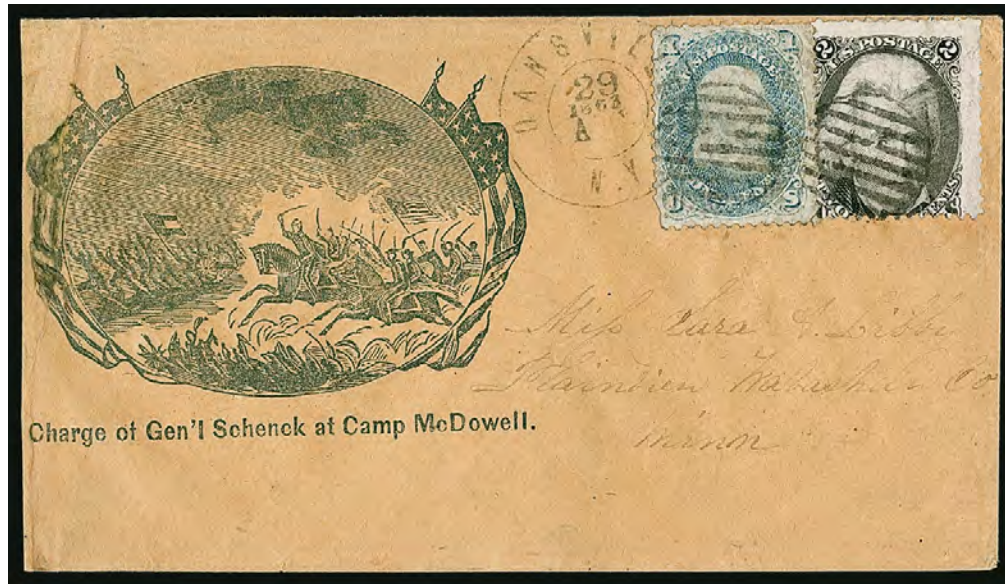 DANSVILLE
29
1864
A
N.Y.
U.S. POSTAGE
2 U.S. POSTAGE 2
Miss Sara Libby
Plainview Wabashaw Co
Minn
Charge of Gen'l Schenck at Camp McDowell.